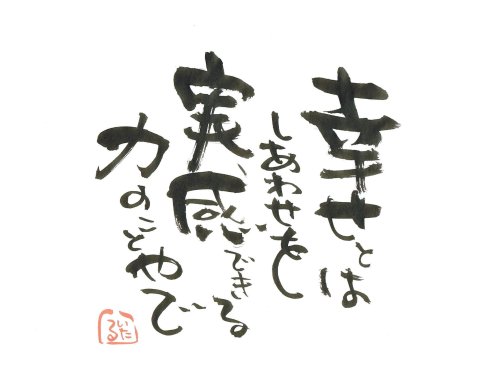 幸せとは
しあわせを
実感できる
力のことやで
いたる